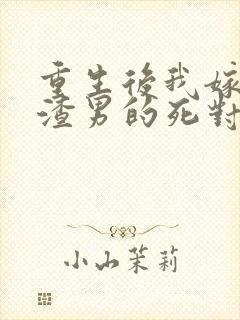 重生後我嫁
渣男的死對
小山茉莉